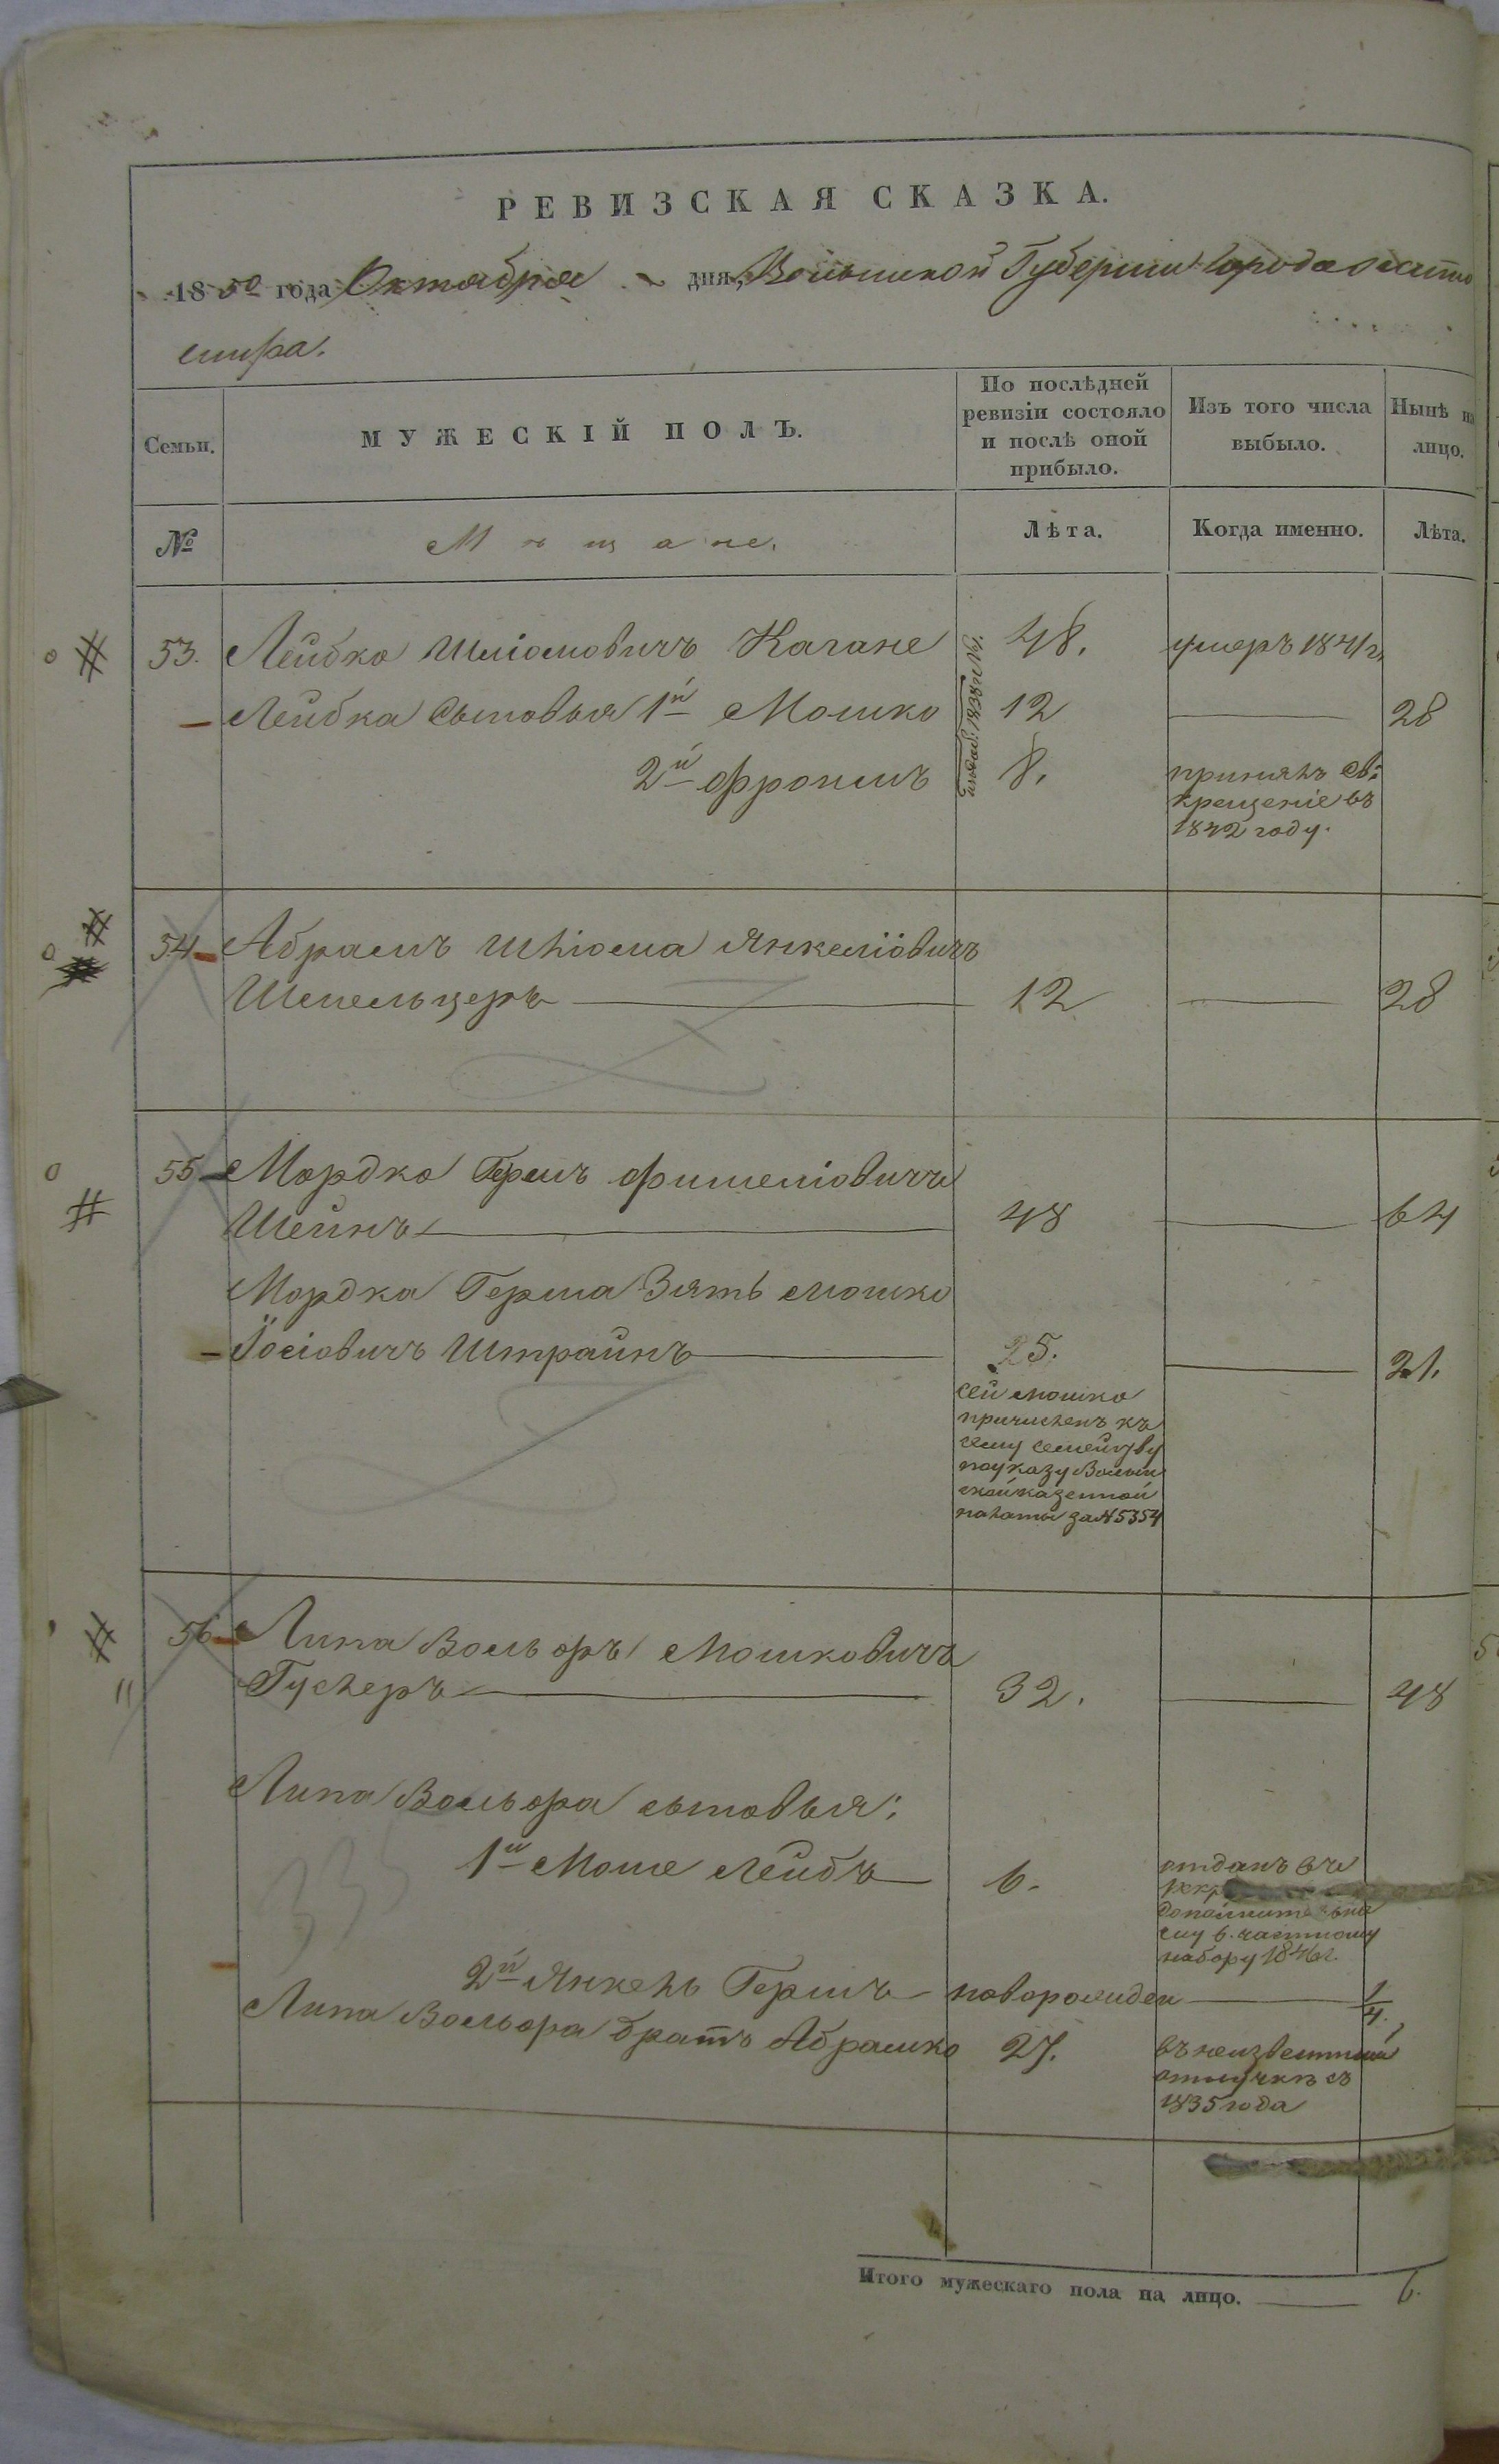 РЕВИЗСКАЯ СКАЗКА.
1850 года Октября ~ дня, Волынской Губернии Города Жито
мира.
Семьи.
МУЖЕСКІЙ ПОЛЪ.
По послѣдней
ревизіи состояло
и послѣ оной
прибыло.
Изъ того числа
выбыло.
Нынѣ на
лицо.
№
Мѣщане.
Лѣта.
Когда именно.
Лѣта.
53. Лейбко Шліомовичъ Кагане 48. умеръ 1841 г.
Лейбка Сыновья 1й Мошко 12 28
2й Фроимъ 8. принялъ Св:
крещеніе въ
1842 году.
1838 г. №
54 Абрамъ Шліома Янкеліовичъ
Шмельцеръ 12 28
55 Мордко Гершъ Фишеліовичъ
Шейнъ 48 64
Мордка Герша Зять Мошко
Іосіовичъ Штрайнъ 25. 21.
сей Мошко
причисленъ къ
сему семейству
по указу Волын
ской казенной
палаты за № 5354
56 Липа Вольоръ Мошковичъ
Гуслеръ 32. 48
Липа Вольора сыновья:
1й Моше Лейбъ 6. отданъ въ
рекр
дополнительно
му 6. частному
набору 1846 г.
2й Янкель Гершъ новорожден 1/4.
Липа Вольора братъ Абрамко 27. въ неизвестной
отлучкѣ съ
1835 года
Итого мужескаго пола на лицо. 6.